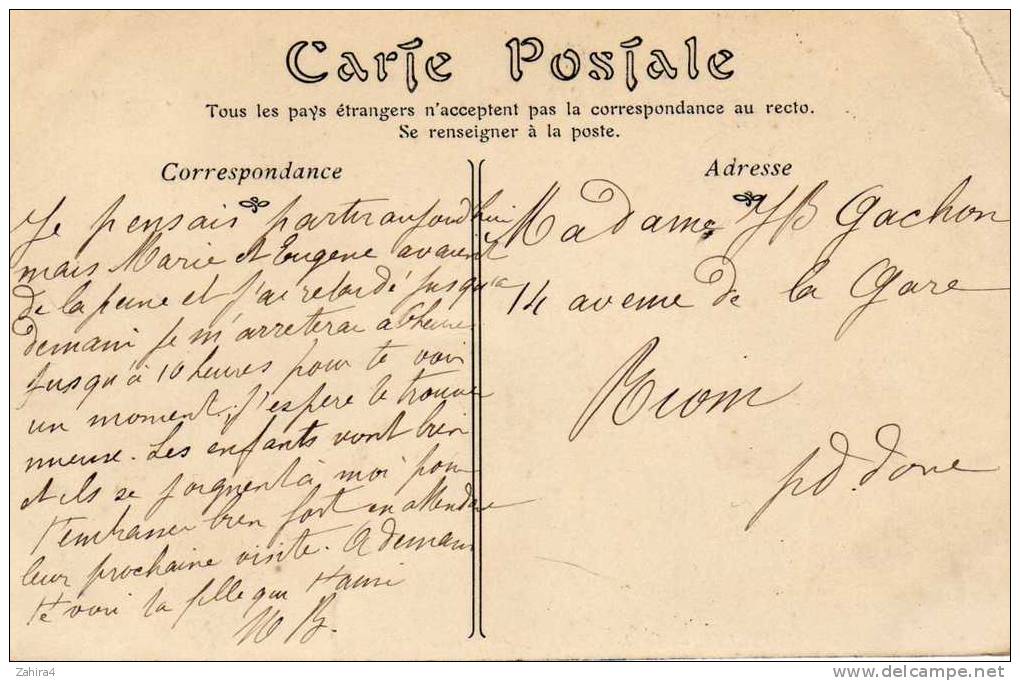 Carte Postale
Tous les pays étrangers n'acceptent pas la correspondance au recto.
Se renseigner à la poste.
Correspondance
Je pensais partir aujourd'hui
mais Marie et Eugene avaient
de la peine et j'ai retardé jusqu'a
demain je m'arreterai a heures
jusqu'à 10 heures pour te voir
un moment, j'espere te trouver
mieux. Les enfants vont bien
et ils se joignent à moi pour
t'embrasser bien fort en attendant
leur prochaine visite. A demain
te voir ta fille qui t'aime
M B.
Adresse
Madame JB Gachon
14 avenue de la Gare
Riom
pd. dome
Zahira4
www.delcampe.net